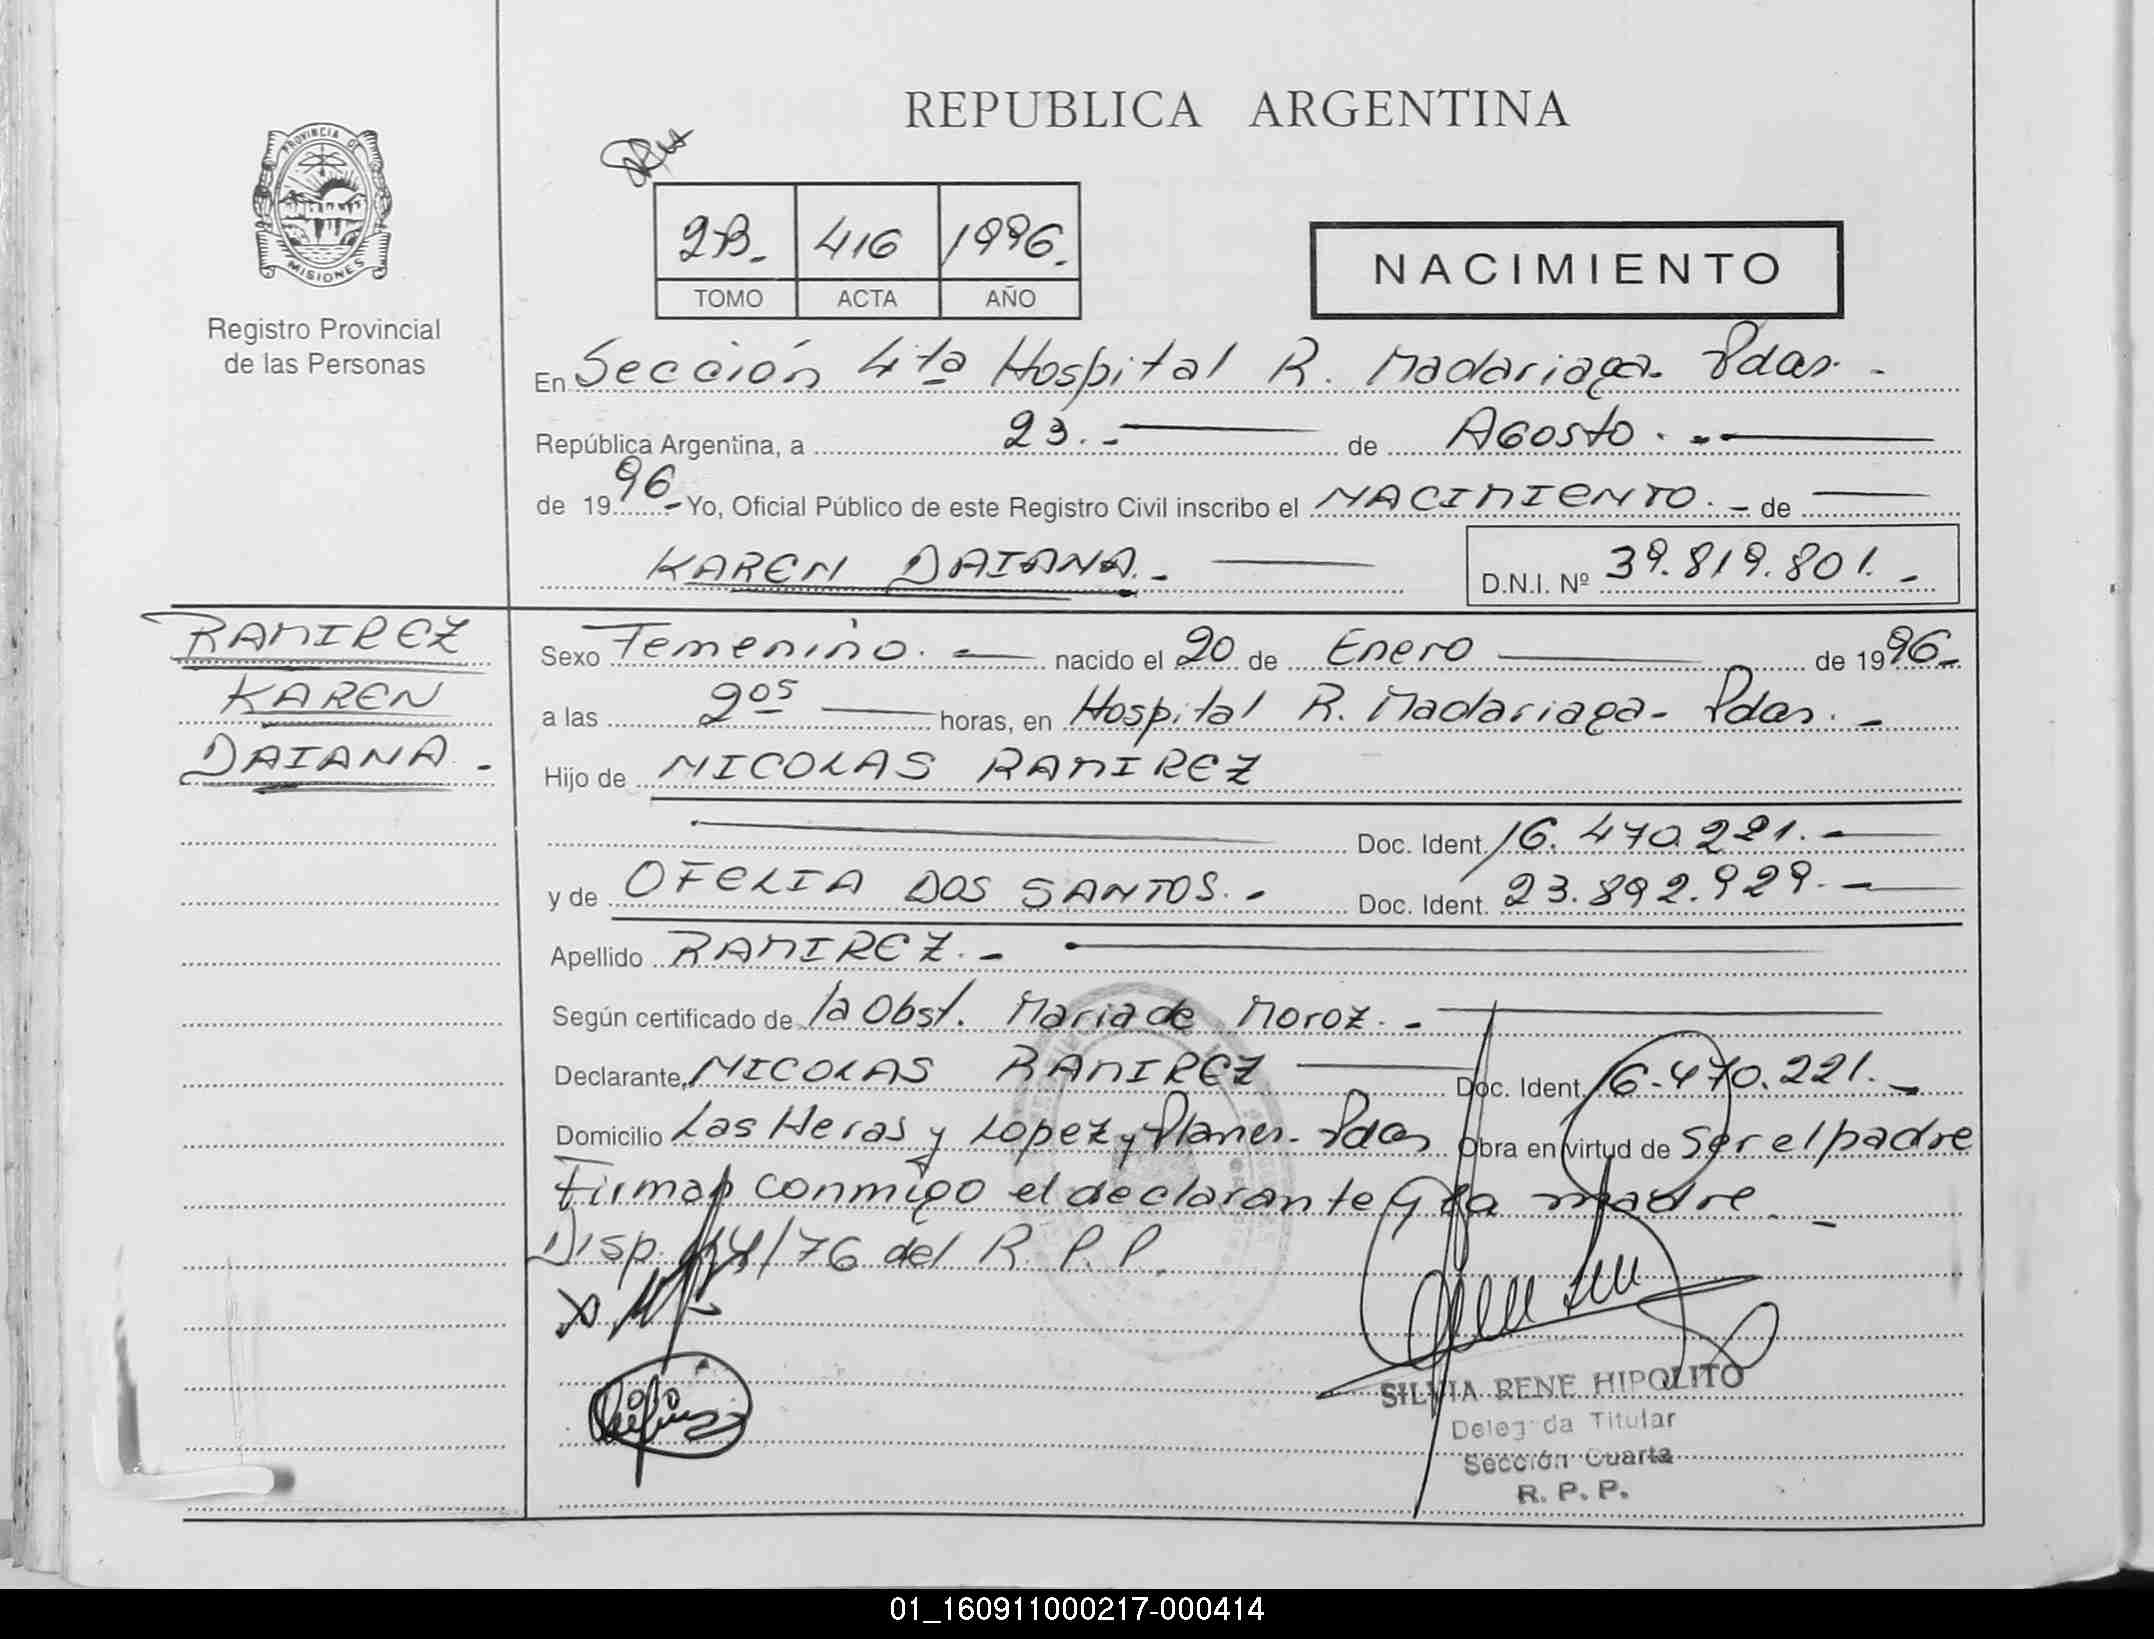 REPUBLICA ARGENTINA
PROVINCIA DE
MISIONES
Registro Provincial
de las Personas
2B.- 416 1996.-
TOMO ACTA AÑO
NACIMIENTO
En Sección 4ta Hospital R. Madariaga. Pdas. -
República Argentina, a 23. - de Agosto. -
de 1996.- Yo, Oficial Público de este Registro Civil inscribo el NACIMIENTO. - de
KAREN DAIANA. - D.N.I. Nº 39.819.801. -
RAMIREZ
KAREN
DAIANA. -
Sexo Femenino. - nacido el 20 de Enero de 1996.-
a las 2 05 horas, en Hospital R. Madariaga - Pdas. -
Hijo de NICOLAS RAMIREZ
Doc. Ident. 16.470.221. -
y de OFELIA DOS SANTOS. - Doc. Ident. 23.892.929. -
Apellido RAMIREZ. -
Según certificado de la Obst. Maria de Moroz. -
Declarante, NICOLAS RAMIREZ Doc. Ident. 16.470.221. -
Domicilio Las Heras y Lopez y Planes - Pdas Obra en virtud de Ser el padre
Firman conmigo el declarante y la madre. -
Disp. /76 del R. P. P.
SILVIA RENE HIPOLITO
Delegada Titular
Sección Cuarta
R. P. P.
01_160911000217-000414